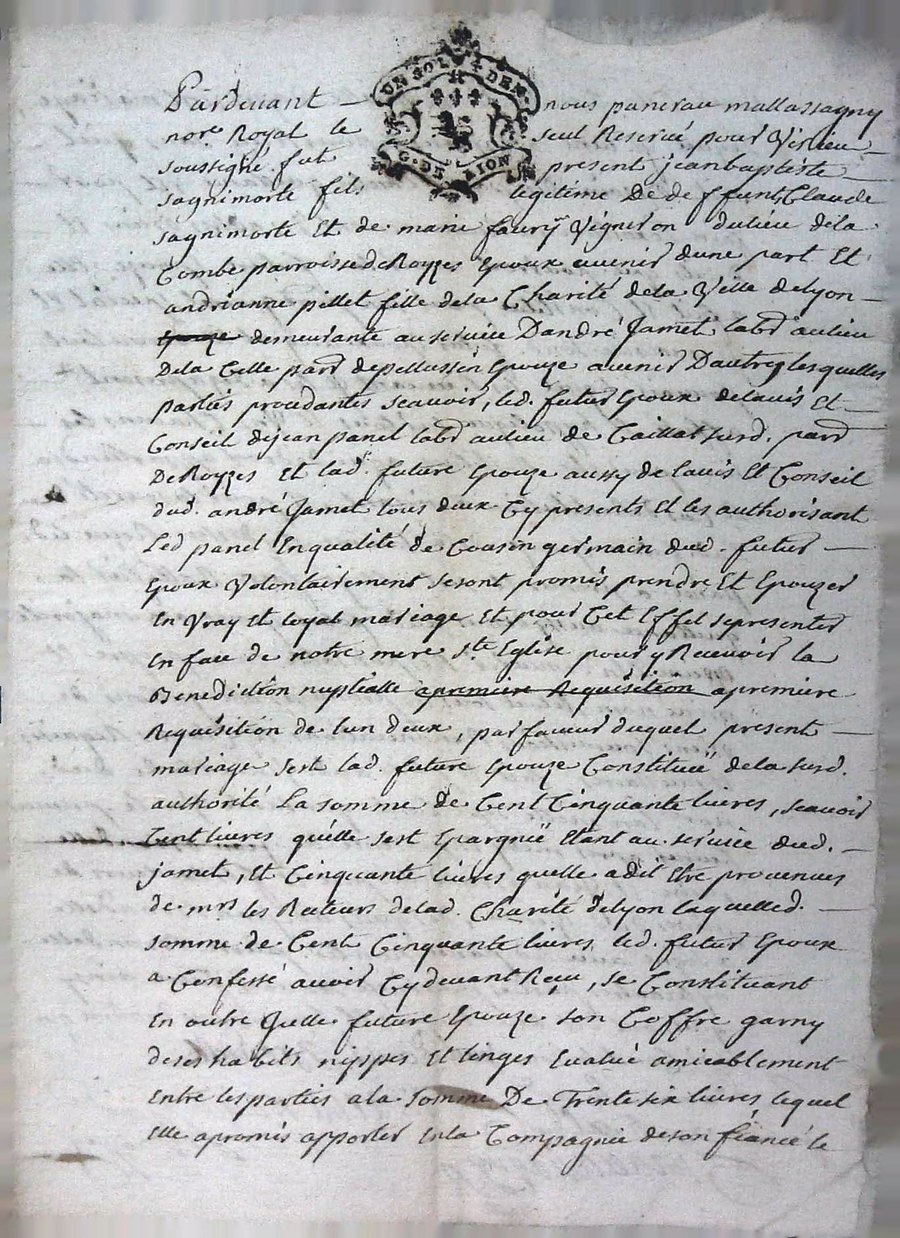 UN SOL 4 DEN.
G. DE RION
Pardevant — nous pancrau mallassagny
nore. Royal le seul Reservé pour Virieu
soussigné fut present jean baptiste
sagnimorte fils legitime De deffunt Claude
sagnimorte Et de marie faury Vigneron dulieu dela
Combe parroisse de Royzes Epoux avenir dune part Et
andrianne pillet fille dela Charité dela Ville de lyon —
Epouze demeurante au service Dandré Jamet labr. au lieu
Dela Celle parr. de pellussin Epouze avenir Dautre, lesquelles
parties procedantes scavoir, led. futur Epoux delavis Et —
Conseil dejean panel labr. aulieu de Caillat surd. parr.
De Royzes Et lad. future Epouze aussy de lavis Et Conseil
dud. andré Jamet tous deux Cy presents Et les authorisant
Led panel En qualité de Cousin germain dud. futur —
Epoux Volontairement se sont promis prendre Et Epouzer
En Vray Et loyal mariage, Et pour Cet Effet se presenter
En face de notre mere ste. Eglise pour y Recevoir la
Benediction nuptialle apremiere Requisition apremiere
Requisition de lun deux, par faveur duquel present —
mariage sest lad. future Epouze Constituëe dela surd.
authorité La somme de Cent Cinquante livres, scavoir
Cent livres quélle sest Epargnëe Etant au service dud. —
jamet, Et Cinquante livres quelle a dit Etre provenues
de mrs les Recteurs delad. Charité de lyon laquelle d. —
somme de Cent Cinquante livres led. futur Epoux
a Confessé avoir Cy devant Reçu, se Constituant
En outre Jcelle future Epouze son Coffre garny
deses habits nippes Et linges Evalué amicablement
Entre les parties a la somme De Trente six livres lequel
Elle a promis apporter En la Compagnie de son fiancé le